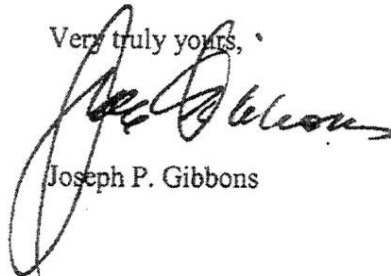 Very truly yours,
Joe Gibbons
Joseph P. Gibbons